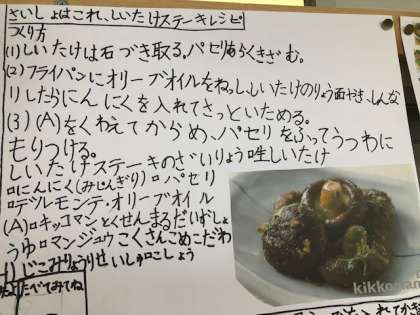 さいしょはこれ、しいたけステーキレシピ
つくり方
(1)しいたけは石づき取る。パセリあらくきざむ。
(2)フライパンにオリーブオイルをねっし、しいたけのりょう面やき、しんな
りしたらにんにくを入れてさっといためる。
(3)(A)をくわえてからめ、パセリをふってうつわに
もりつける。
しいたけステーキのざいりょう生しいたけ
にんにく(みじんぎり)パセリ
デルモンテ・オリーブオイル
(A)キッコマンとくせんまるだいずしょ
うゆマンジョウこくさんこめこだわ
りじこみりょうりせいしゅこしょう
たべてみてね
kikkoman